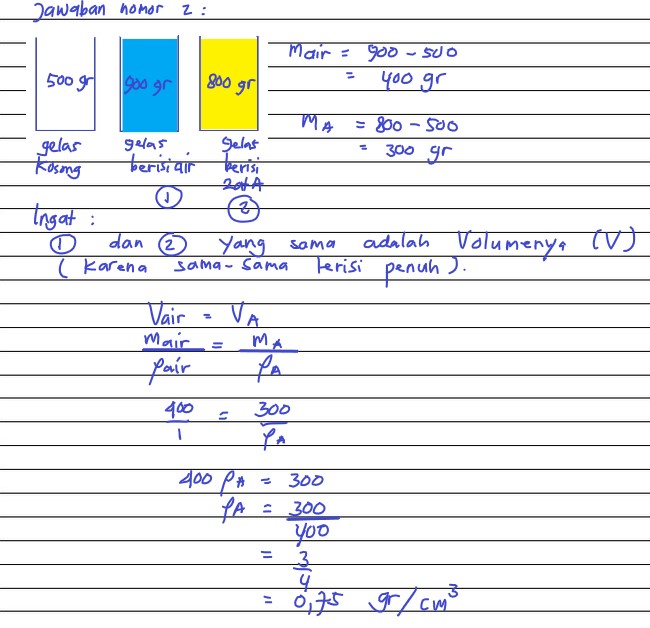 Jawaban nomor 2 :
500 gr
900 gr
800 gr
gelas
kosong
gelas
berisi air
①
gelas
berisi
zat A
②
Mair = 900 - 500
= 400 gr
MA = 800 - 500
= 300 gr
Ingat :
① dan ② yang sama adalah Volumenya (V)
( karena sama-sama terisi penuh ).
Vair = VA
mair/ρair = mA/ρA
400/1 = 300/ρA
400 ρA = 300
ρA = 300/400
= 3/4
= 0,75 gr/cm³